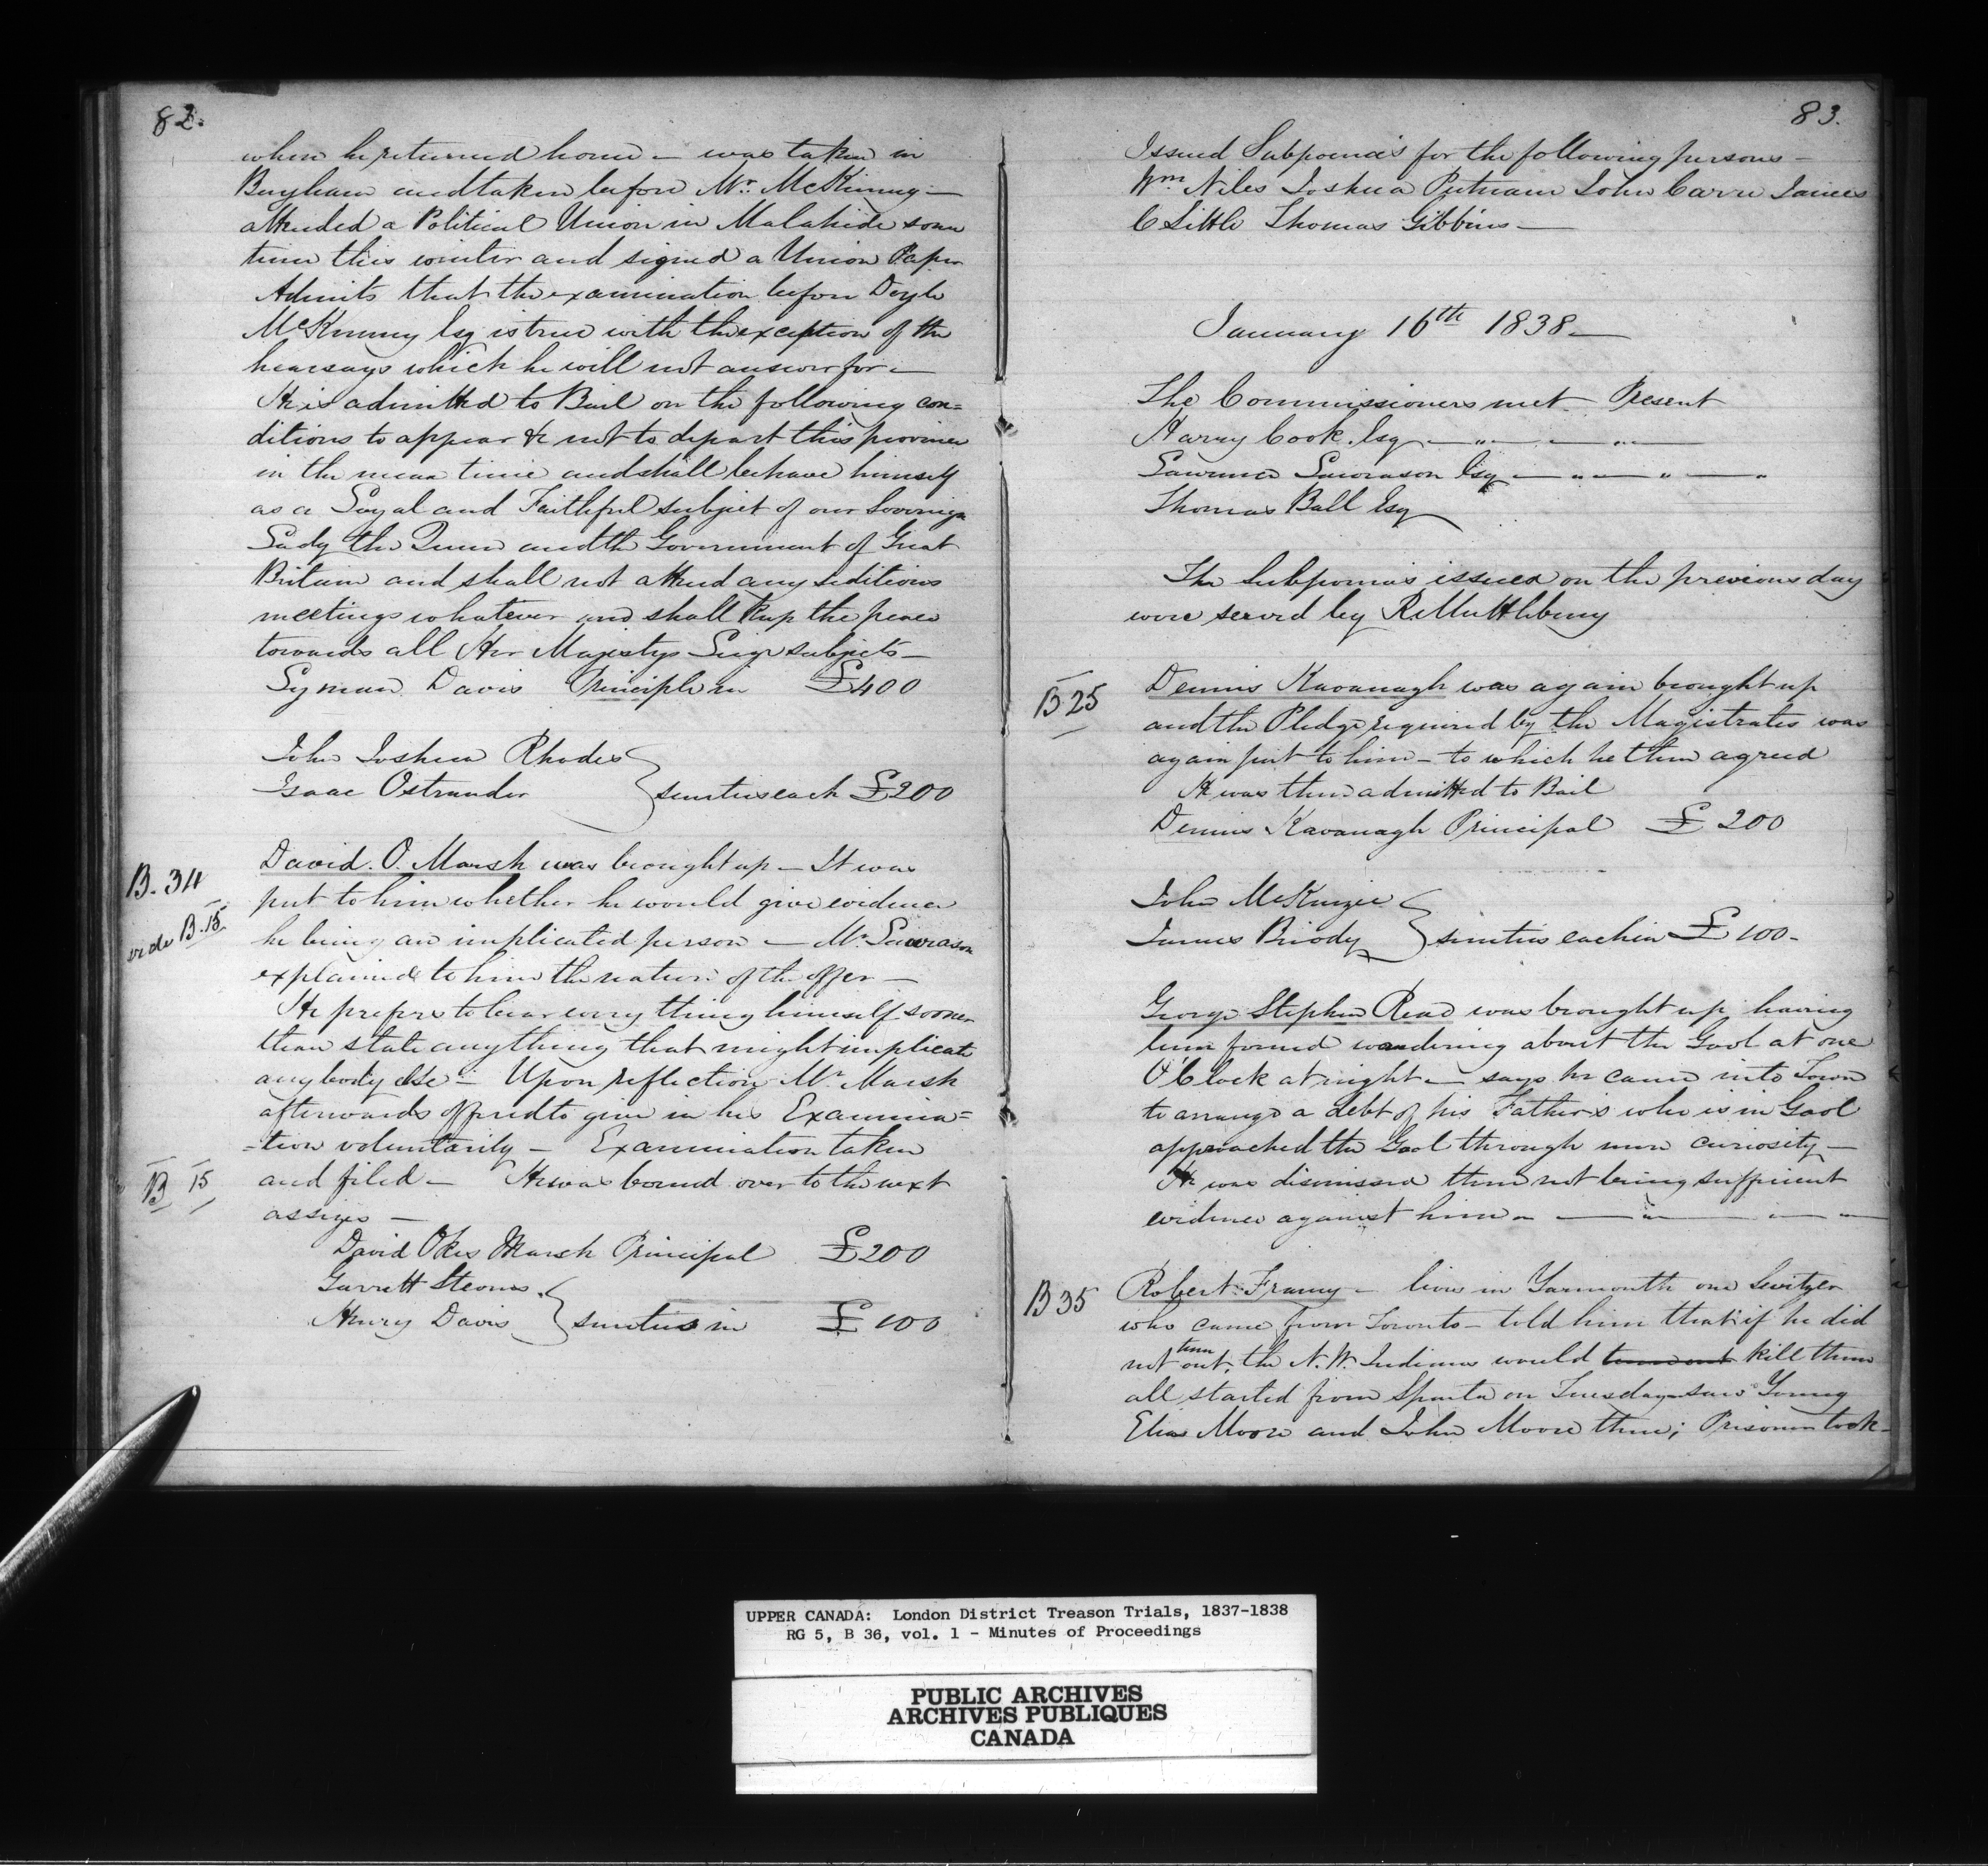 82.
when he returned home – was taken in
Bayham and taken before Mr. McKinney –
attended a Political Union in Malahide some
time this winter and signed a Union Paper
Admits that the examination before Doyle
McKinney Esq is true with the exception of the
hearsays which he will not answer for –
He is admitted to Bail on the following con=
ditions to appear & not to depart this province
in the mean time and shall behave himself
as a Loyal and Faithful subject of our Sovereign
Lady the Queen and the Government of Great
Britain and shall not attend any seditious
meetings whatever and shall keep the peace
towards all Her Majestys Liege subjects –
Lyman Davis Principle in £400
John Joshua Rhodes
Isaac Ostrander } sureties each £200
B. 34
vide B. 15
David. O. Marsh was brought up – It was
put to him whether he would give evidence
he being an implicated person – Mr. Lawrason
explained to him the nature of the offer –
He prefers to bear every thing himself sooner
than state anything that might implicate
anybody else – Upon reflection Mr Marsh
afterwards offered to give in his Examina=
=tion voluntarily – Examination taken
B 15
and filed – He was bound over to the next
assizes –
David Okes Marsh Principal £200
Garrett Stevens
Henry Davis } sureties in £100
83.
Issued Subpoena's for the following persons –
Wm Niles Joshua Putnam John Carre James
C Little Thomas Gibbins –
January 16th 1838 –
The Commissioners met – Present
Harry Cook Esq — " — "
Lawrence Lawrason Esq — " — " — "
Thomas Ball Esq
The Subpoena's issued on the previous day
were served by R. Muttlebury
B 25
Dennis Kavanagh was again brought up
and the Pledge required by the Magistrates was
again put to him – to which he then agreed
He was then admitted to Bail
Dennis Kavanagh Principal £ 200
John McKenzie
James Briody } sureties each in £ 100 –
George Stephen Read was brought up having
been found wandering about the Gaol at one
O'Clock at night – says he came into Town
to arrange a debt of his Father's who is in Gaol
approached the Gaol through mere curiosity –
He was dismissed there not being sufficient
evidence against him — " — "
B 35
Robert Franey – lives in Yarmouth one Switzer
who came from Toronto – told him that if he did
not turn out, the N. W. Indians would turn out kill them
all started from Sparta on Tuesday saw Young
Elias Moore and John Moore there; Prisoner took
UPPER CANADA: London District Treason Trials, 1837-1838
RG 5, B 36, vol. 1 - Minutes of Proceedings
PUBLIC ARCHIVES
ARCHIVES PUBLIQUES
CANADA